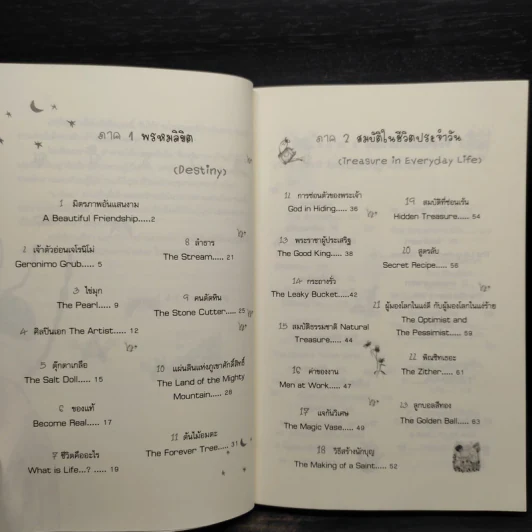 ภาค 1 พรหมลิขิต
(Destiny)
1 มิตรภาพอันแสนงาม
A Beautiful Friendship.....2
2 เจ้าตัวอ่อนเจโรนิโม่
Geronimo Grub..... 5
3 ไข่มุก
The Pearl..... 9
4 ศิลปินเอก The Artist..... 12
5 ตุ๊กตาเกลือ
The Salt Doll..... 15
6 ของแท้
Become Real..... 17
7 ชีวิตคืออะไร
What is Life...? ..... 19
8 ลำธาร
The Stream..... 21
9 คนตัดหิน
The Stone Cutter..... 25
10 แผ่นดินแห่งภูเขาศักดิ์สิทธิ์
The Land of the Mighty
Mountain..... 28
11 ต้นไม้อมตะ
The Forever Tree..... 31
ภาค 2 สมบัติในชีวิตประจำวัน
(Treasure in Everyday Life)
12 การซ่อนตัวของพระเจ้า
God in Hiding..... 36
13 พระราชาผู้ประเสริฐ
The Good King..... 38
14 กระถางรั่ว
The Leaky Bucket.....42
15 สมบัติธรรมชาติ Natural
Treasure..... 44
16 ค่าของงาน
Men at Work..... 47
17 แจกันวิเศษ
The Magic Vase..... 49
18 วิธีสร้างนักบุญ
The Making of a Saint..... 52
19 สมบัติที่ซ่อนเร้น
Hidden Treasure..... 54
20 สูตรลับ
Secret Recipe..... 56
21 ผู้มองโลกในแง่ดี กับผู้มองโลกในแง่ร้าย
The Optimist and
The Pessimist..... 59
22 พิณซิทเธอะ
The Zither..... 61
23 ลูกบอลสีทอง
The Golden Ball..... 63